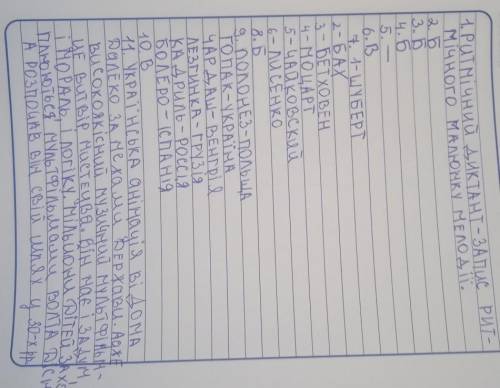 1. РИТМІЧНИЙ ДИКТАНТ-ЗАПИС РИТ-
МІЧНОГО МАЛЮНКУ МЕЛОДІЇ.
2. Б
3. Б
4. Б
5. —
6. В
7. 1-ШУБЕРТ
2-БАХ
3-БЕТХОВЕН
4-МОЦАРТ
5-ЧАЙКОВСКИЙ
6-ЛИСЕНКО
8. Б
9. ПОЛОНЕЗ-ПОЛЬЩА
ГОПАК-УКРАЇНА
ЧАРДАШ-ВЕНГРІЯ
ЛЕЗГИНКА-ГРУЗІЯ
КАДРИЛЬ-РОССІЯ
БОЛЕРО-ІСПАНІЯ
10. В
11. УКРАЇНСЬКА АНІМАЦІЯ ВІДОМА
ДАЛЕКО ЗА МЕЖАМИ ДЕРЖАВИ. АДЖЕ
ВИСОКОЯКІСНИЙ МУЗИЧНИЙ МУЛЬТФІЛЬМ-
ЦЕ ВИТВІР МИСТЕЦТВА. ВІН МАЄ І ЗАДУМ,
І МОРАЛЬ, І ЛОГІКУ. МІЛЬЙОНИ ДІТЕЙ ЗАХО
ПЛЮЮТЬСЯ МУЛЬТФІЛЬМАМИ ВОЛТА ДІСН
А РОЗПОЧАВ ВІН СВІЙ ШЛЯХ У 30-Х РР